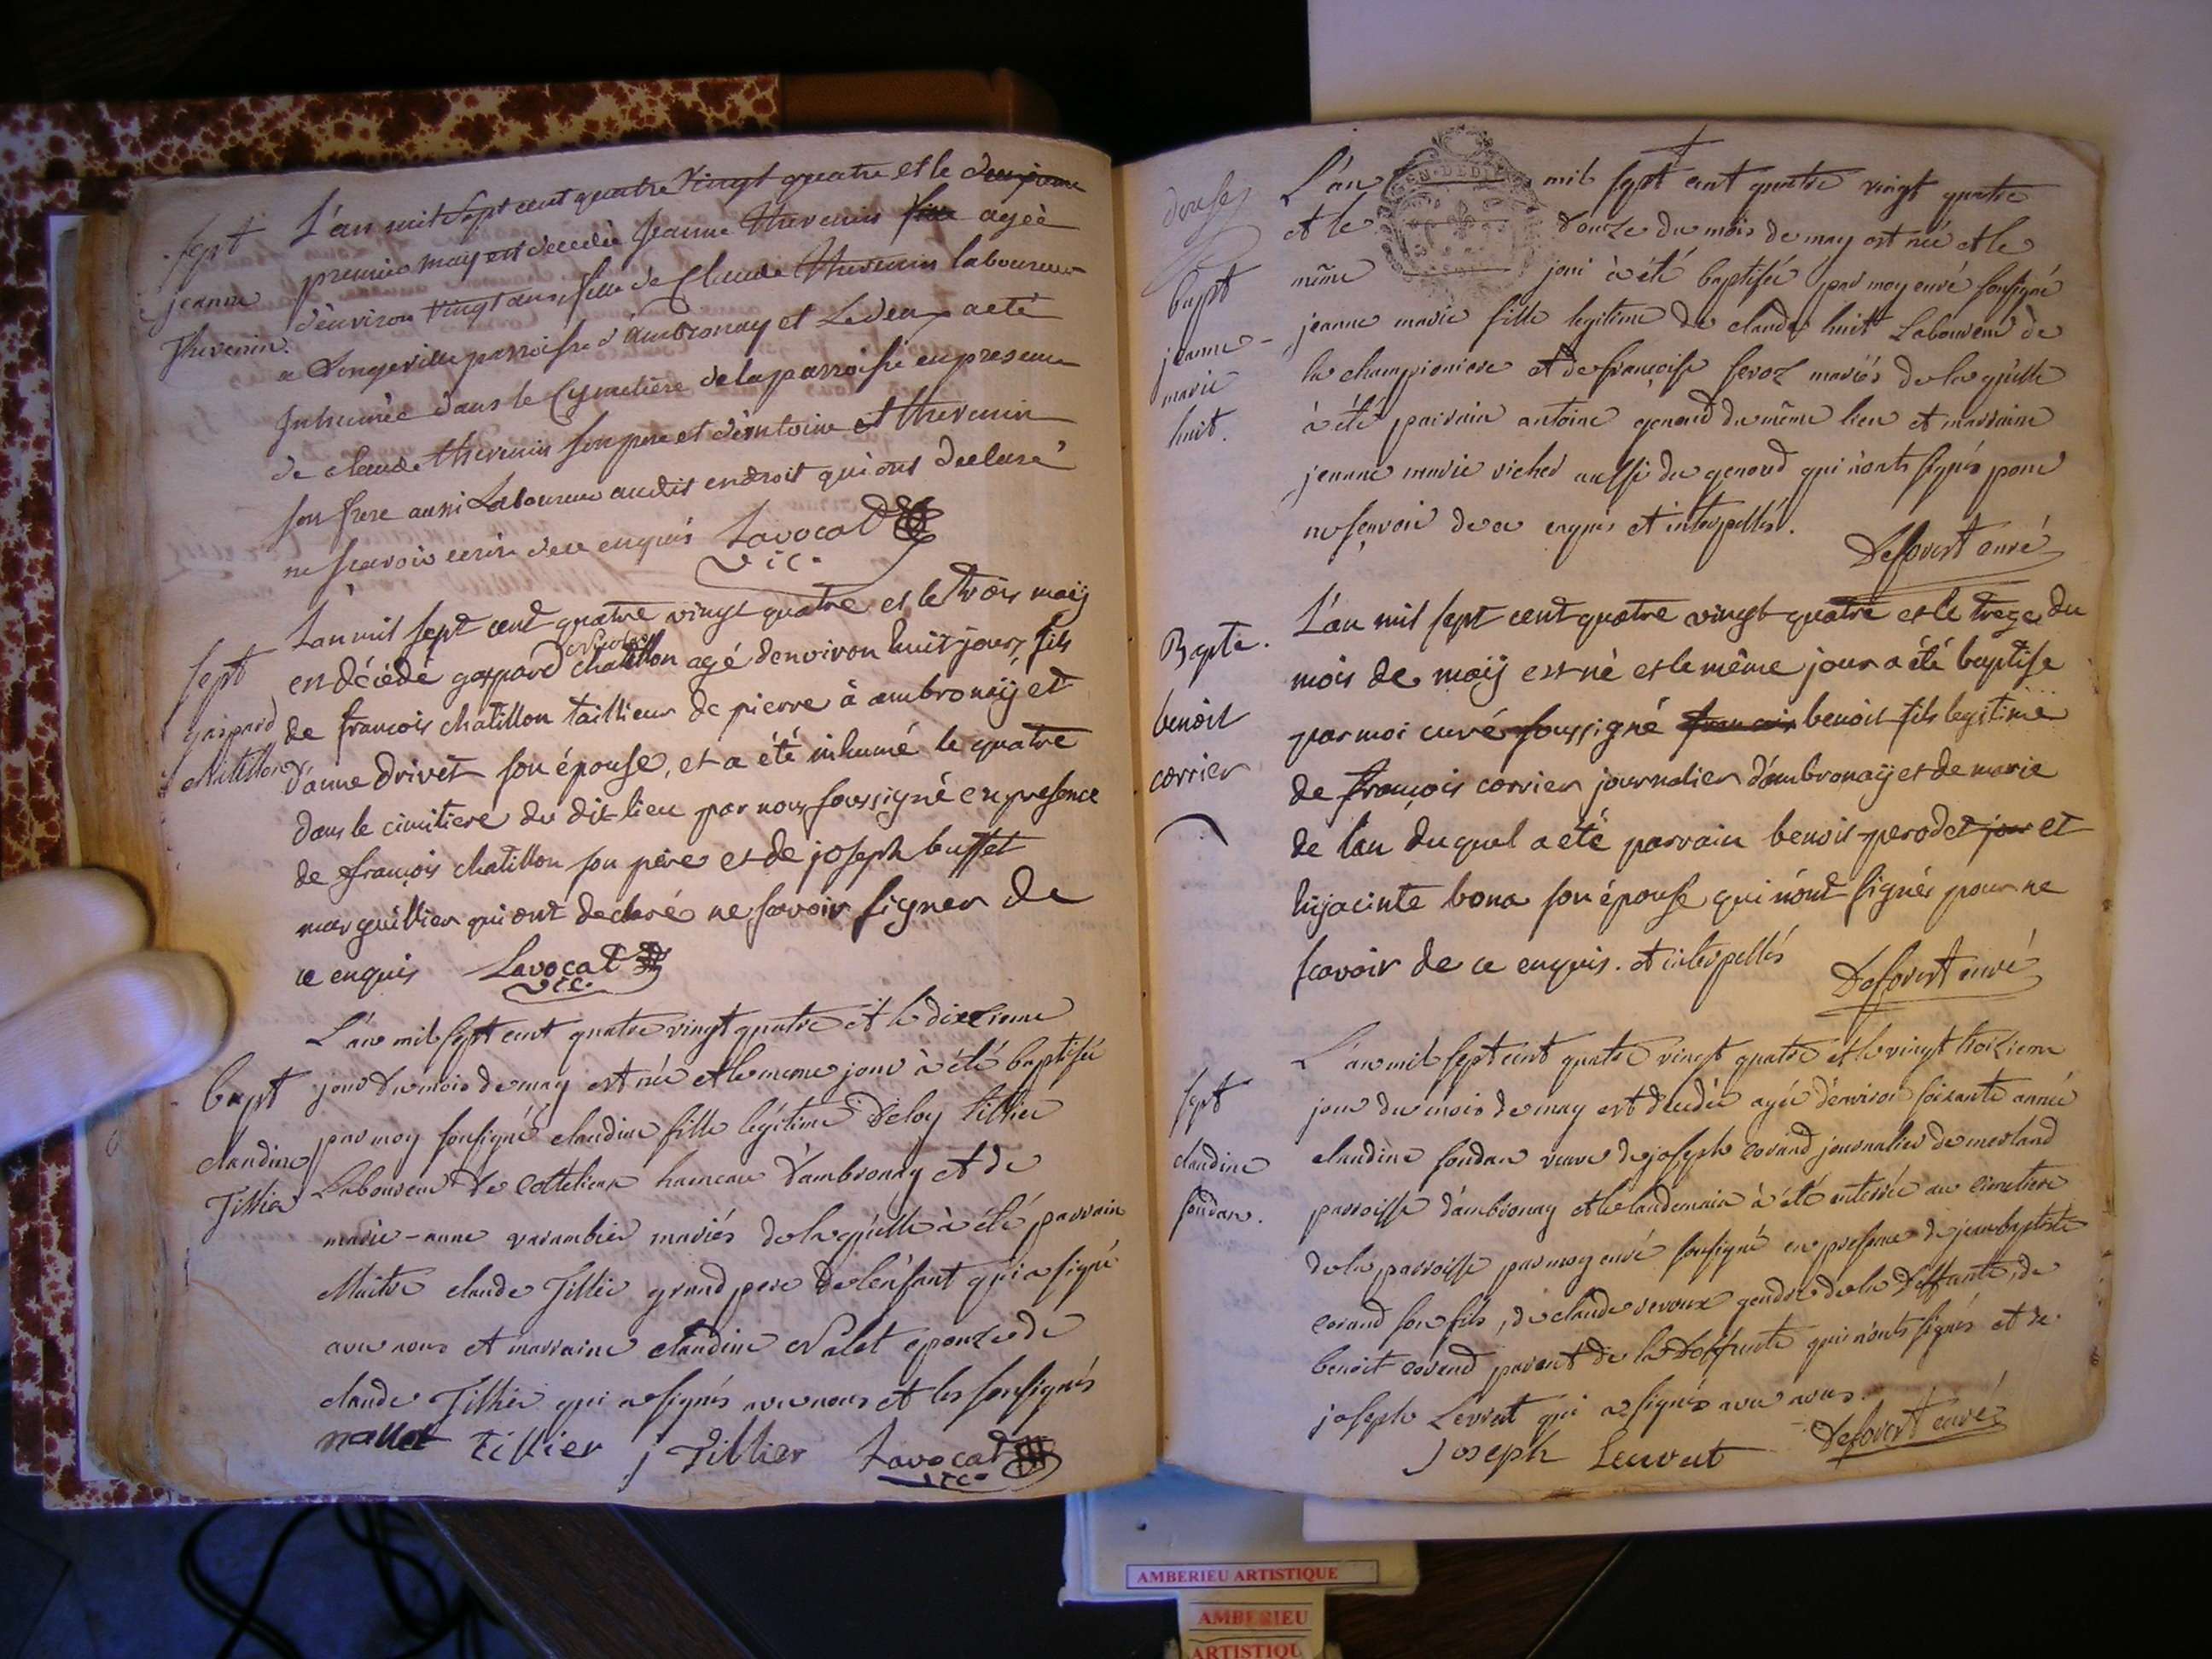 sept
jeanne
Thevenin.
L'an mil sept cent quatre vingt quatre et le deuxieme
premier may est decedée Jeanne thevenin agée
d'environ vingt ans, fille de Claude thevenin laboureur
a Longeville parroisse d'ambronay et Le deux a eté
Inhumée dans le Cymetière de la parroisse en presence
de claude thevenin son pere et d'antoine et thevenin
son frere aussi Laboureur audit endroit qui ont declaré
ne scavoir ecrire de ce enquis Lavocat
vic.
sept
gaspard
chatillon
L'an mil sept cent quatre vingt quatre et le trois maij
est décédé gaspard chatillon agé denviron huit jours, fils
de françois chatillon taillieur de pierre à ambronaij et
d'anne drivet son épouse, et a été inhumé le quatre
dans le cimitiere du dit lieu par nous soussigné en presence
de françois chatillon son père et de joseph buffet
marguillier qui ont declaré ne savoir signer de
ce enquis Lavocat
vic.
bapt
claudine
Tillier
L'an mil sept cent quatre vingt quatre et le dixieme
jour du mois de may est née et le meme jour à été baptisée
par moy sousigné claudine fille légitime d'eloy tillier
Laboureur de cottelieux hameau d'ambronay et de
marie-anne varambier mariés de laquelle à été parrain
Maitre claude Tillier grand pere de l'enfant qui a signé
avec nous et marraine claudine Nalet epouze de
claude Tillier qui a signés avec nous et les sousignés
nallet Tillier j Tillier Lavocat
vic.
bapt
jeanne-
marie
huit.
L'an mil sept cent quatre vingt quatre
et le douze du mois de may est née et le
même jour à été baptisée par moy curé sousigné
jeanne marie fille legitime de claude huit Laboureur de
la championiere et de françoise feroz mariés de laquelle
à été parrain antoine genoud du même lieu et marraine
jeanne marie vicher aussi du genoud qui n'ont signés pour
ne sçavoir de ce enquis et interpellés.
Deforest curé
Bapte.
benoit
corrier
L'an mil sept cent quatre vingt quatre et le treze du
mois de maij est né et le même jour a été baptise
par moi curé soussigné francois benoit fils legitime
de françois corrier journalier d'ambronaij et de marie
de lau duquel a été parrain benoit perodet jour et
hijacinte bona son épouse qui n'ont signés pour ne
scavoir de ce enquis. et interpellés
Deforest curé
sept
claudine
foudan.
L'an mil sept cent quatre vingt quatre et le vingt troizieme
jour du mois de may est decedée agée d'environ soixante année
claudine foudan veuve de joseph corand journalier de merland
parroisse d'ambronay et le landemain à été enterrée au cimetiere
de la parroisse par moy curé sousigné en presence de jean baptiste
corand son fils, de claude revoux gendre de la deffunte, de
benoit corand parent de la deffunte qui n'ont signés et de
joseph Levrat qui a signés avec nous.
Joseph Leuvrat Deforest curé
AMBERIEU ARTISTIQUE
AMBERIEU
ARTISTIQU